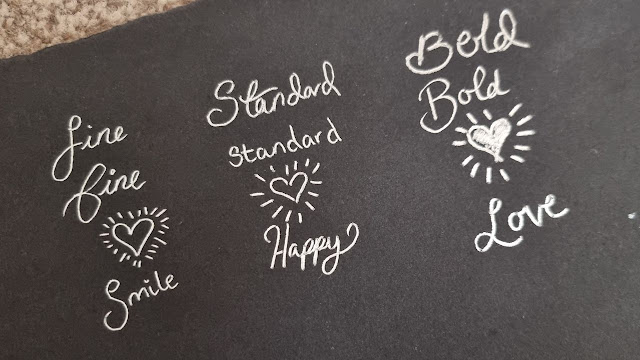 fine
fine
Smile
Standard
standard
Happy
Bold
Bold
Love